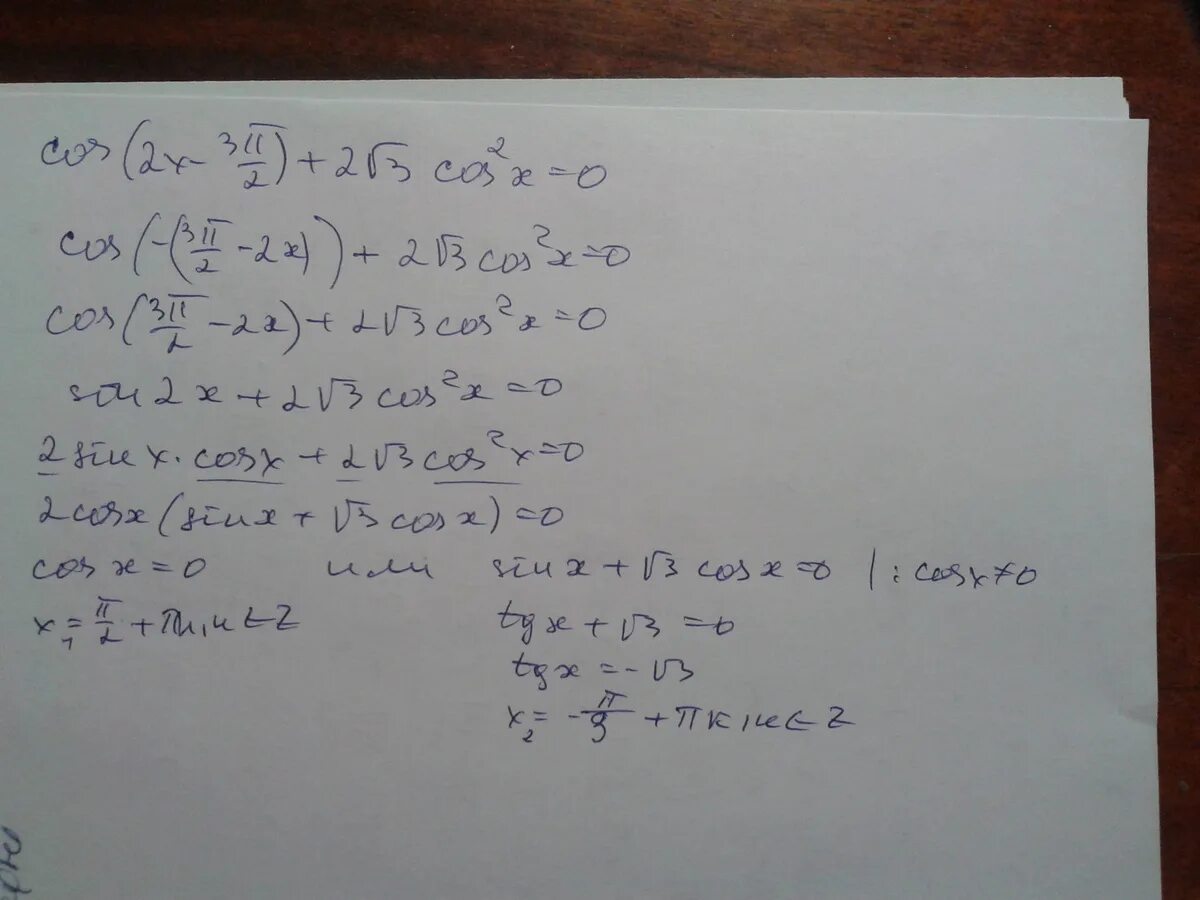 cos(2x - 3π/2) + 2√3 cos²x = 0
cos(-(3π/2 - 2x)) + 2√3 cos²x = 0
cos(3π/2 - 2x) + 2√3 cos²x = 0
sin 2x + 2√3 cos²x = 0
2 sin x · cos x + 2√3 cos²x = 0
2 cos x (sin x + √3 cos x) = 0
cos x = 0 или sin x + √3 cos x = 0 | : cos x ≠ 0
x₁ = π/2 + πn, n ∈ Z tg x + √3 = 0
tg x = -√3
x₂ = -π/3 + πk, k ∈ Z